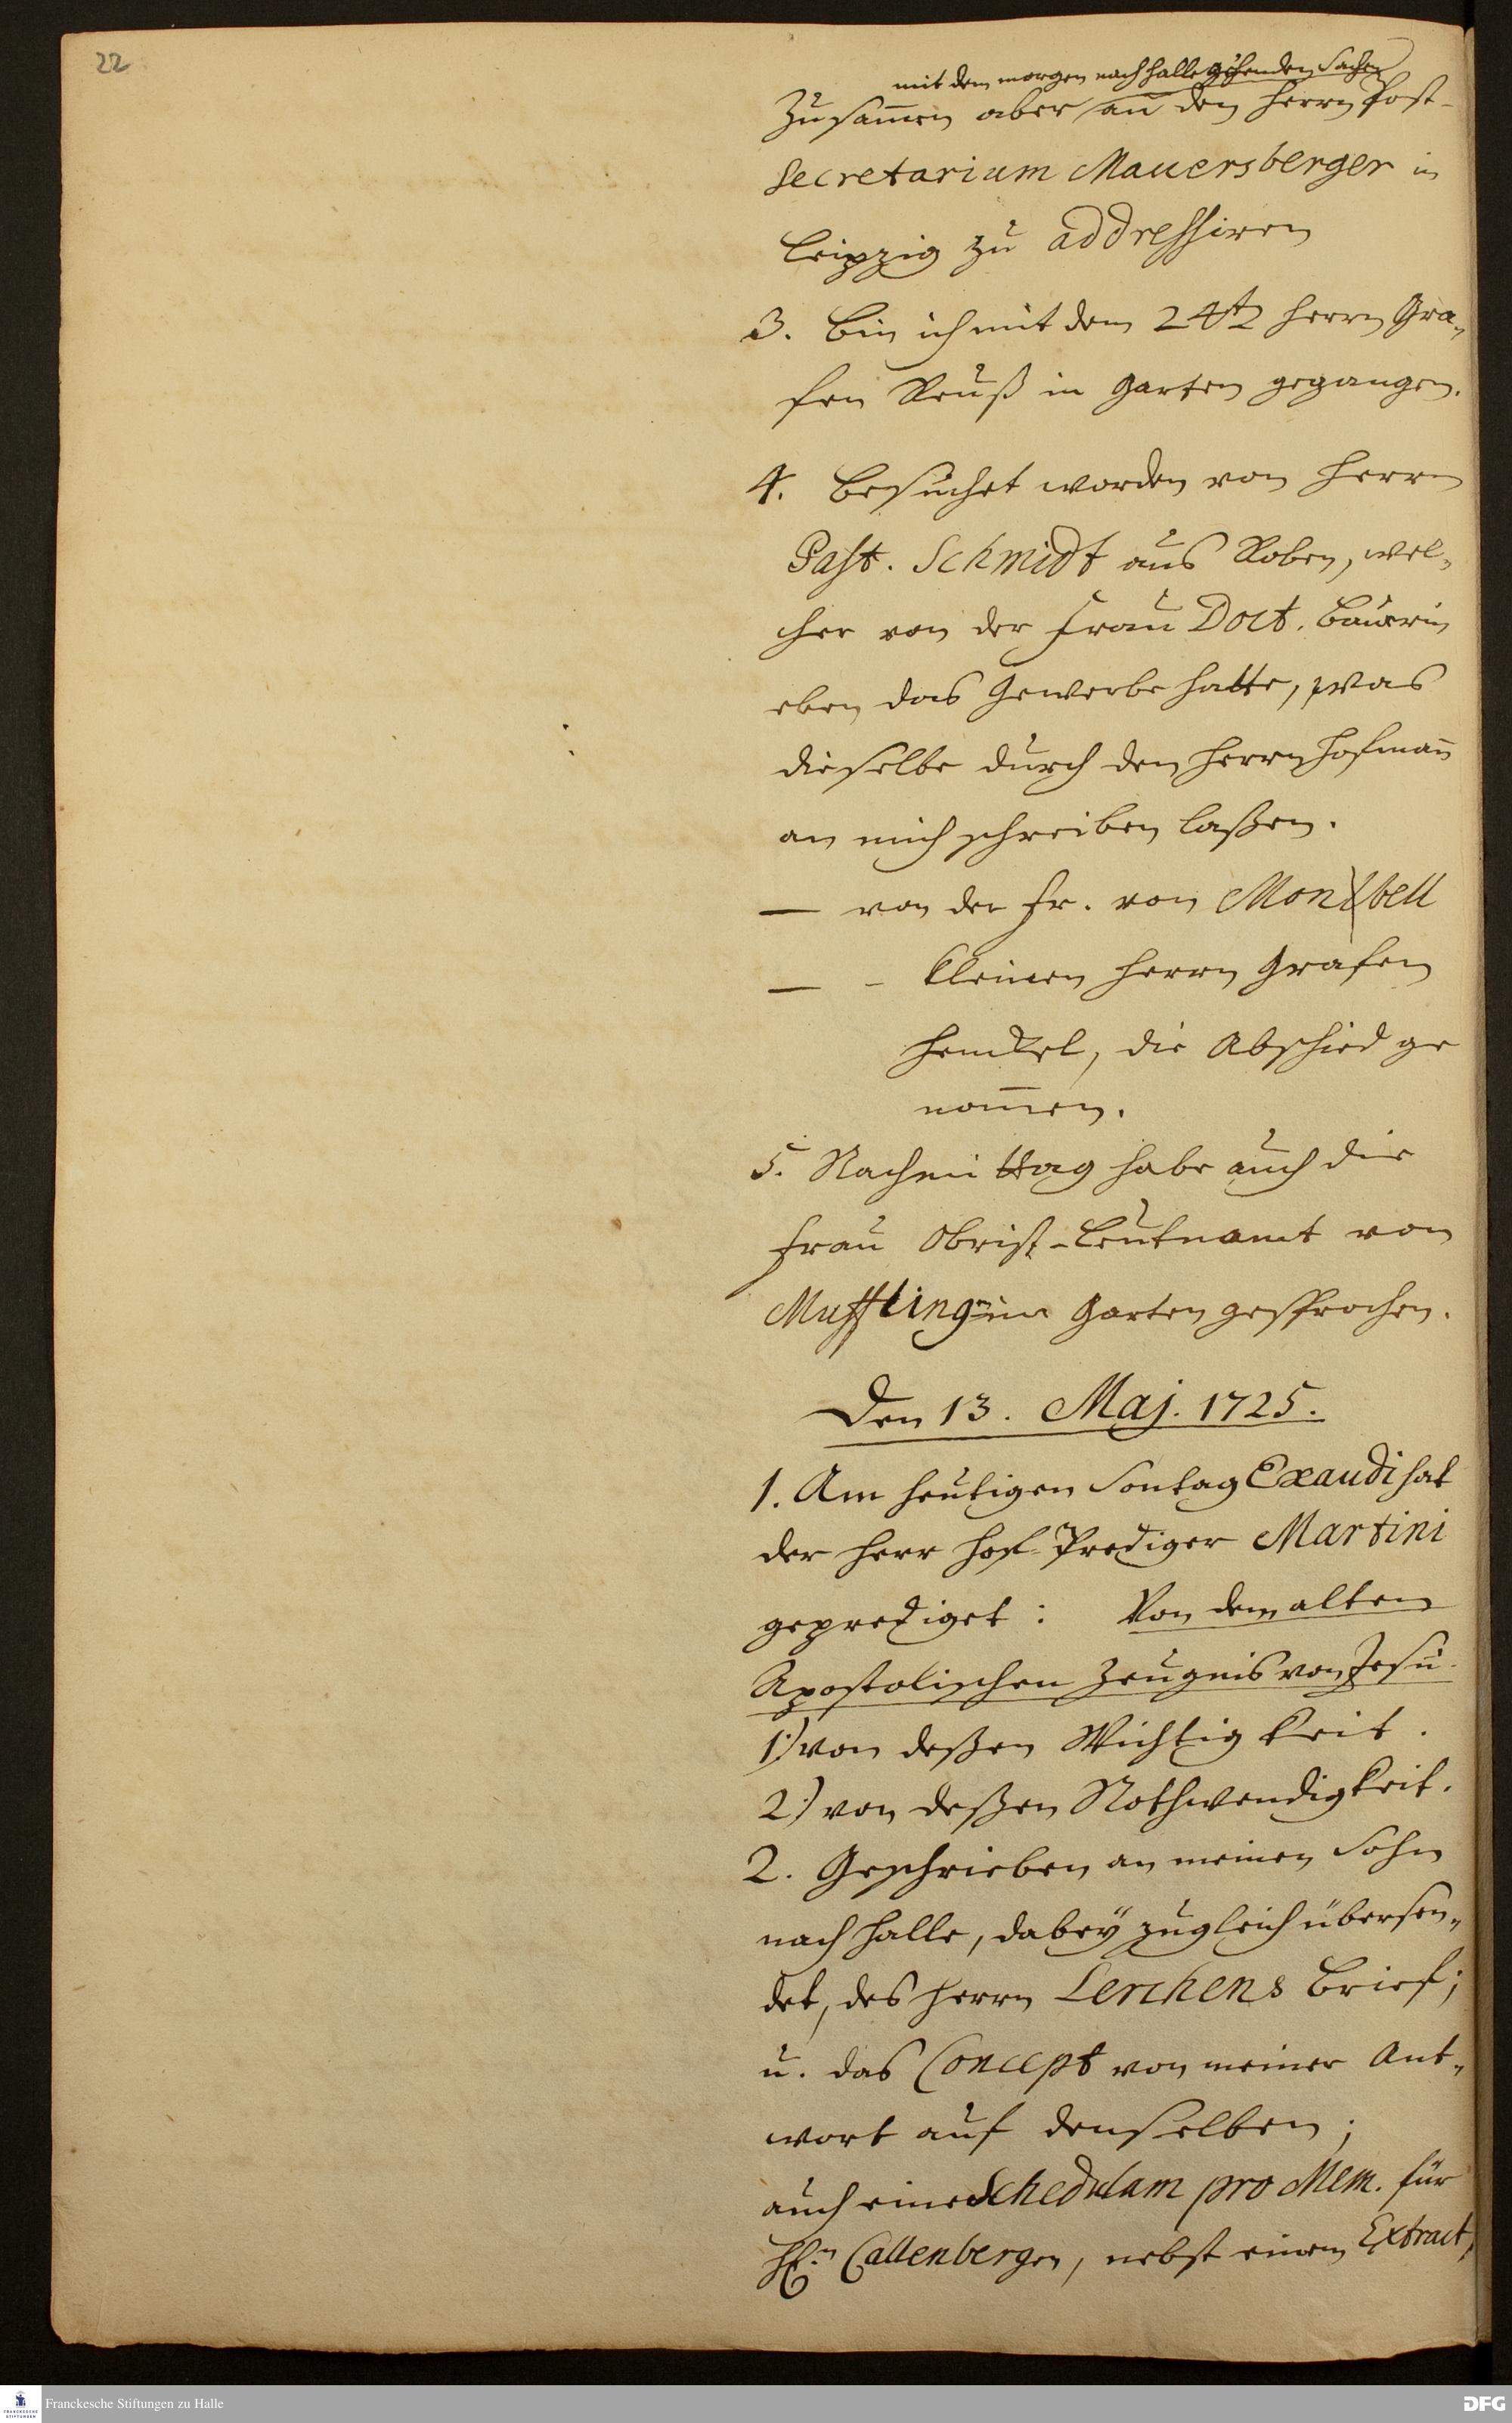 22
mit dem morgen nach Halle gehenden Sachen
Zusam̄en aber an den Herrn Post-
Secretarium Mauersberger in
Leipzig zu addressiren
3. Bin ich mit dem 24t Herrn Gra„
fen Reuß in Garten gegangen.
4. Besuchet worden von Herrn
Past. Schmidt aus Roben, wel„
cher von der Frau Doct. Bauerin
eben das Gewerbe hatte, was
dieselbe durch den Herrn Hofman̄
an mich schreiben laßen.
— von der Fr. von Monbell
— - kleinen Herrn Grafen
Henckel, die Abschied ge
nom̄en.
5. Nachmittag habe auch die
Frau Obrist-Leutnamt von
Muffling im Garten gesprochen.
Den 13. Maj. 1725.
1. Am heutigen Sontag Exaudi hat
der Herr Hof-Prediger Martini
geprediget: Von dem alten
Apostolischen Zeugnis von Jesu.
1.) von deßen Wichtigkeit.
2.) von deßen Nothwendigkeit.
2. Geschrieben an meinen Sohn
nach Halle, dabey zugleich übersen„
det, des Herrn Lerchens Brief;
u. das Concept von meiner Ant„
wort auf denselben;
auch eine Schedulam pro Mem. für
H.n Callenbergen, nebst einem Extract,
Franckesche Stiftungen zu Halle
DFG